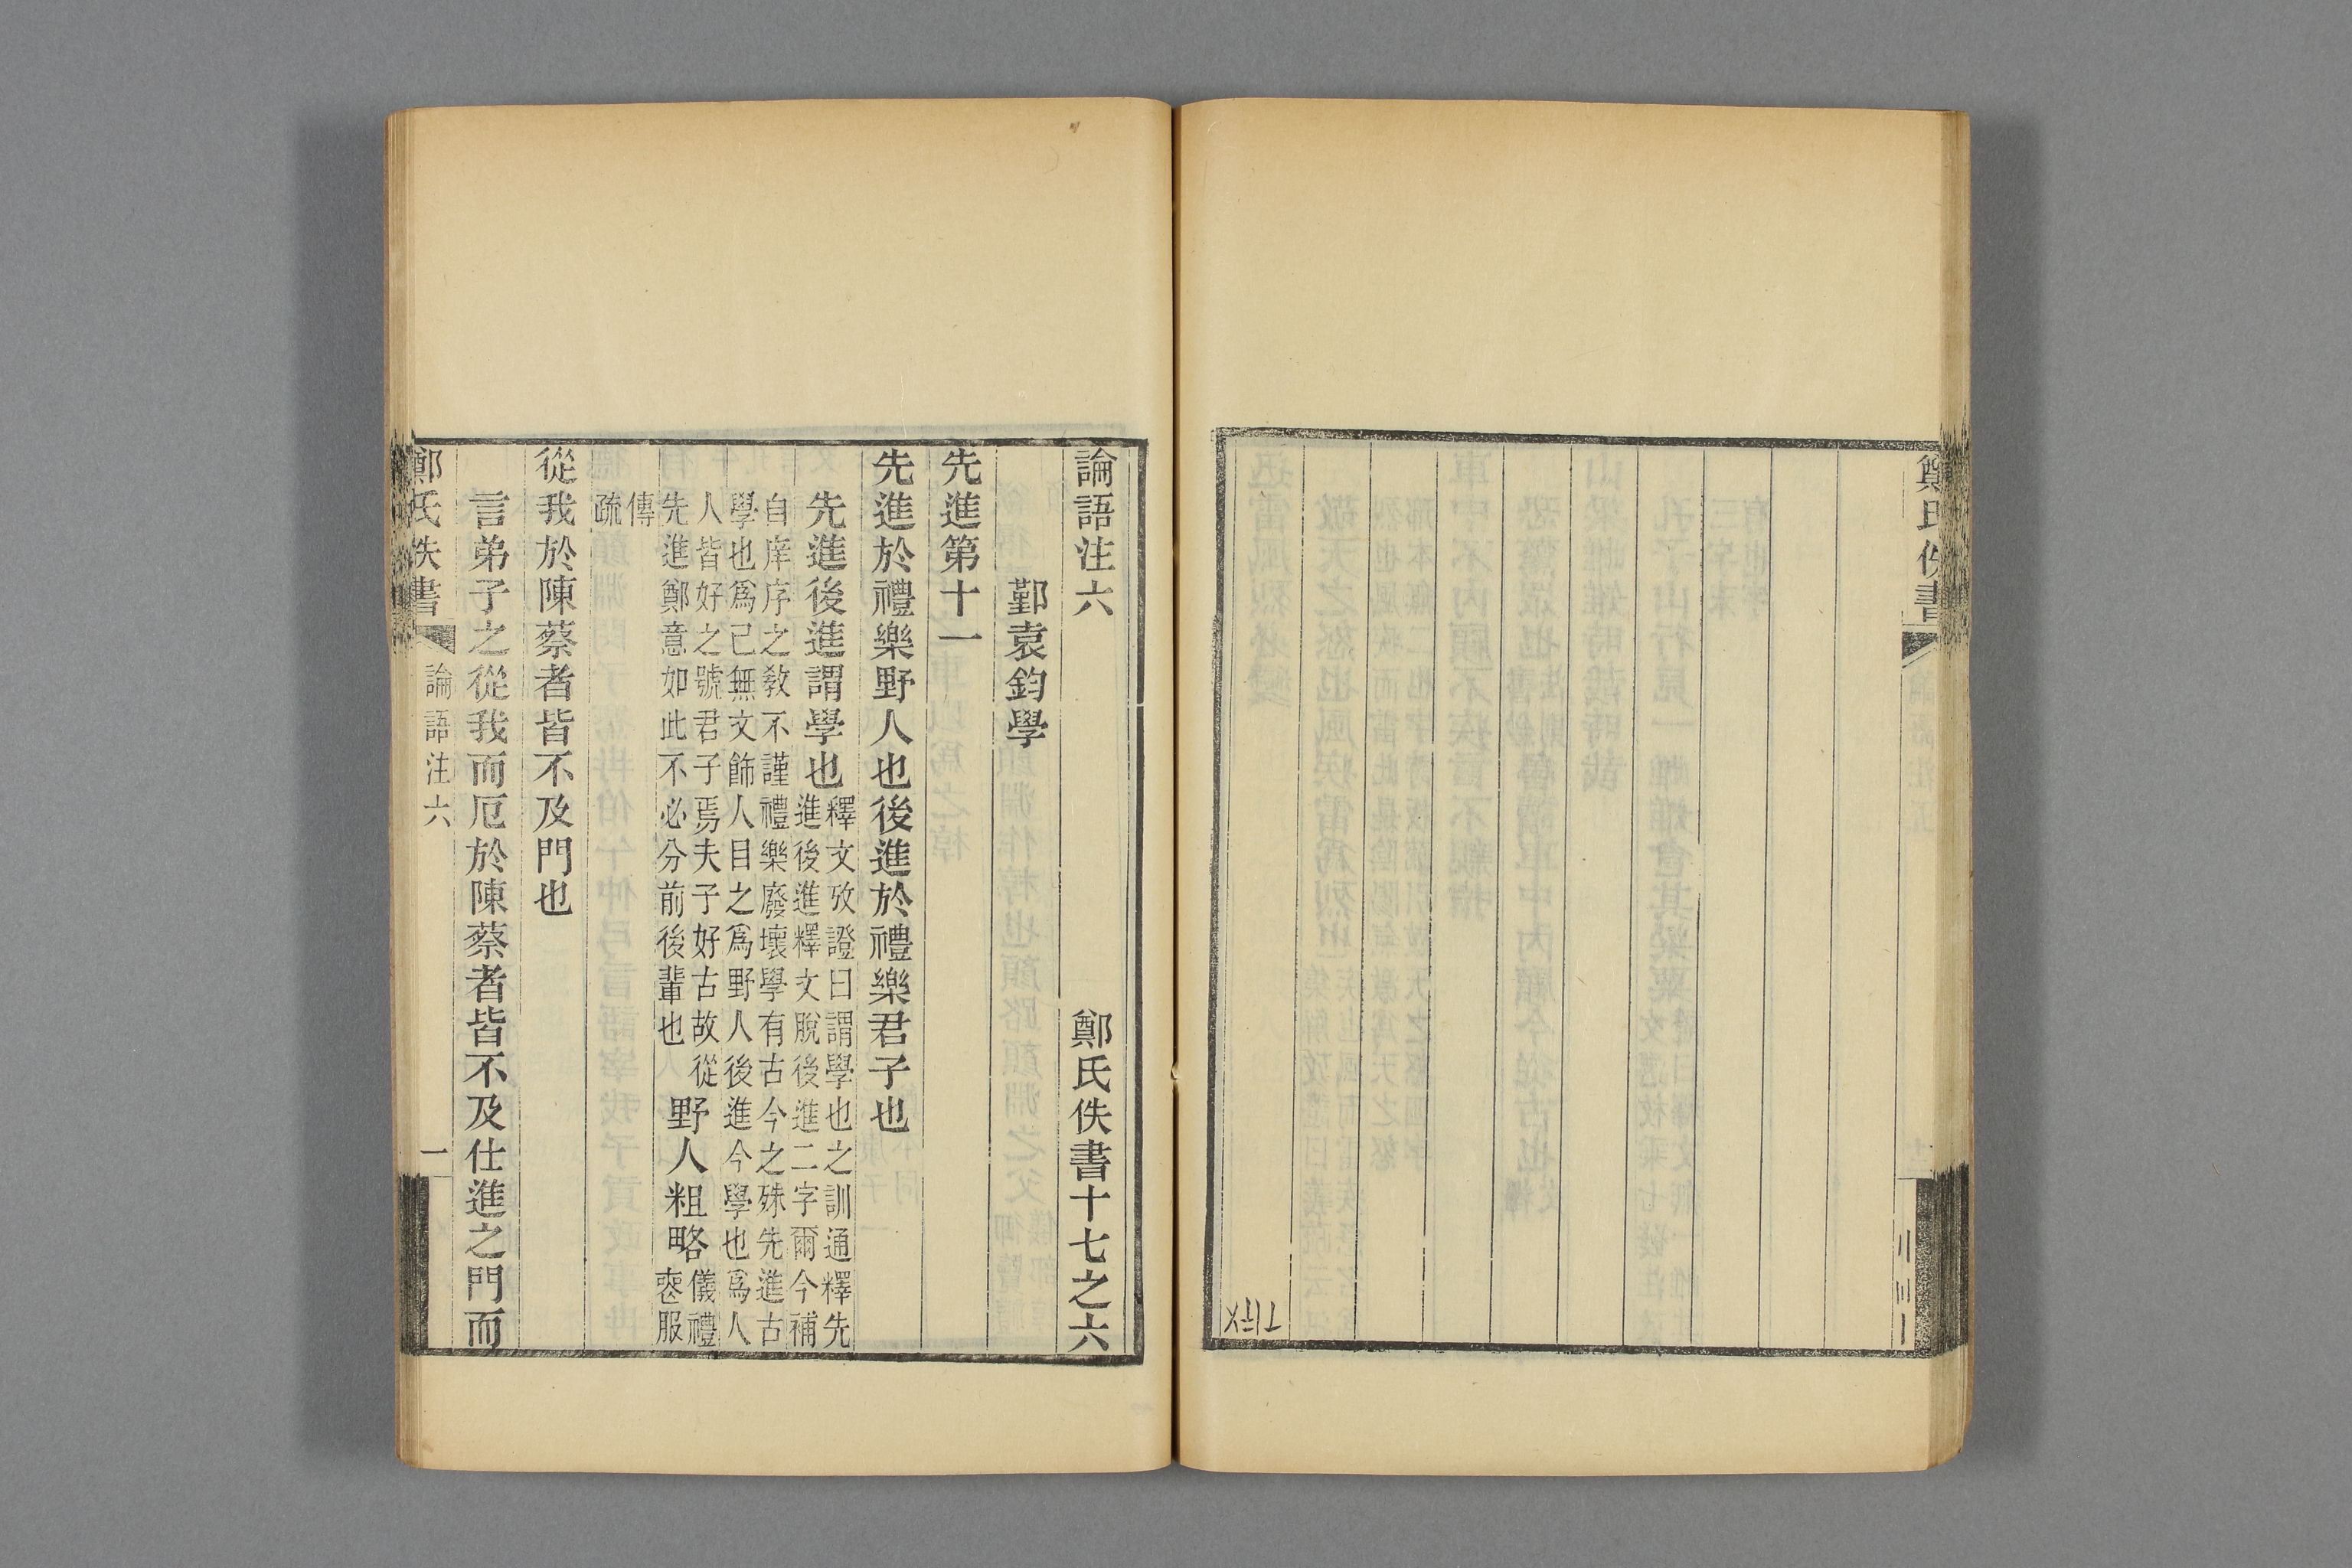 鄭氏佚書
論語注六　鄭氏佚書十七之六
鄞袁鈞學
先進第十一
先進於禮樂野人也後進於禮樂君子也
先進後進謂學也
釋文攷證曰謂學也之訓通釋先
進後進釋文脫後進二字爾今補
自庠序之敎不謹禮樂廢壞學有古今之殊先進古
學也爲己無文飾人目之爲野人後進今學也爲人
人皆好之號君子焉夫子好古故從
先進鄭意如此不必分前後輩也
野人粗略
儀禮
喪服
傳
疏
從我於陳蔡者皆不及門也
言弟子之從我而厄於陳蔡者皆不及仕進之門而
鄭氏佚書　論語注六　一